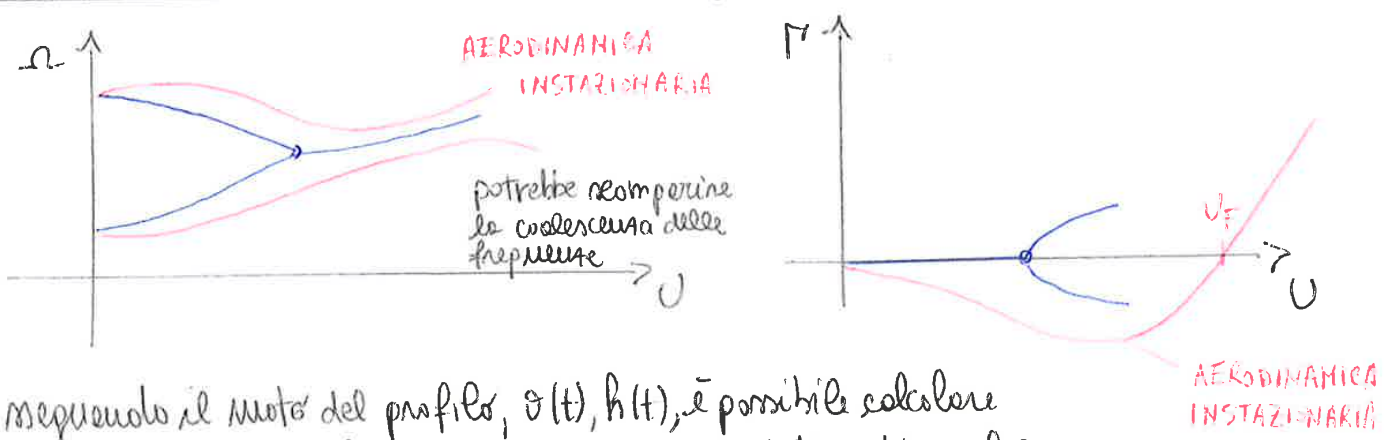 Ω
AERODINAMICA
INSTAZIONARIA
potrebbe scomparire
la coalescenza delle
frequenze
U
Γ
U_F
U
AERODINAMICA
INSTAZIONARIA
seguendo il moto del profilo, θ(t), h(t), è possibile calcolare